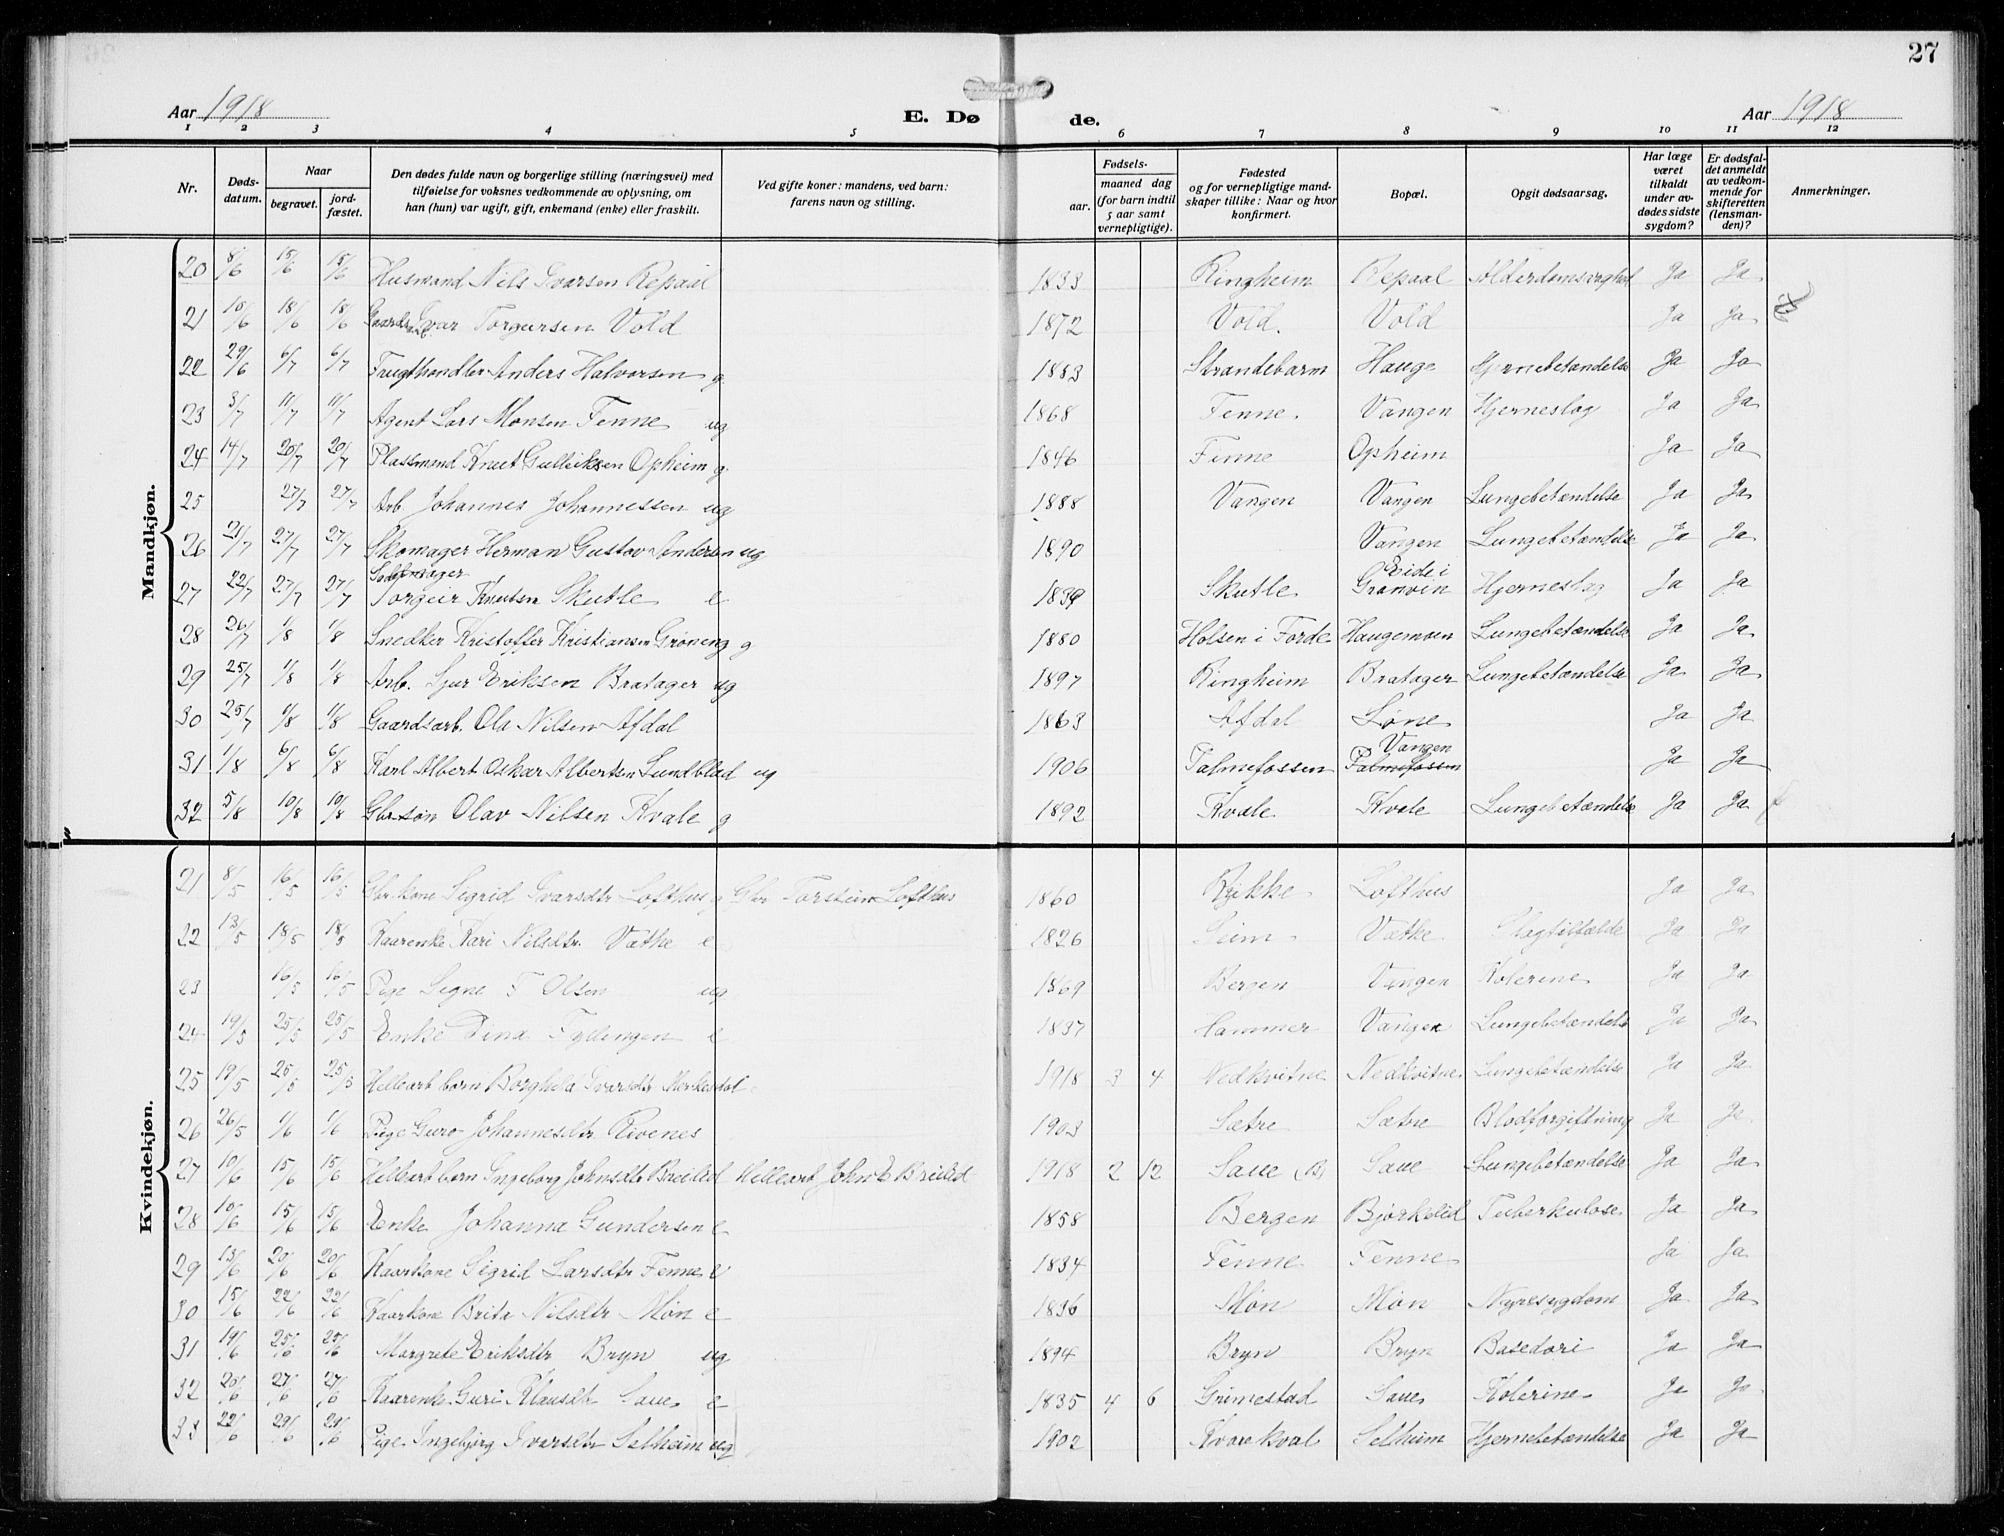 27
Aar 1918 E. Døde. Aar 1918
1 2 3 4 5 6 7 8 9 10 11 12
Nr. Døds-datum. Naar begravet. jord-fæstet. Den dødes fulde navn og borgerlige stilling (næringsvei) med tilføielse for voksnes vedkommende av oplysning, om han (hun) var ugift, gift, enkemand (enke) eller fraskilt. Ved gifte koner: mandens, ved barn: farens navn og stilling. Fødsels- aar. maaned dag (for barn indtil 5 aar samt vernepligtige). Fødested og for vernepligtige mand-skaper tillike: Naar og hvor konfirmert. Bopæl. Opgit dødsaarsag. Har læge været tilkaldt under av-dødes sidste sygdom? Er dødsfal-det anmeldt av vedkom-mende for skifteretten (lensman-den)? Anmerkninger.
Mandkjøn.
20 8/6 15/6 15/6 Husmand Nils Ivarsen Repaal 1833 Ringheim Repaal Alderdomsvaghed Ja Ja
21 10/6 18/6 18/6 Ivar Torgersen Vold 1872 Vold. Vold Ja Ja
22 29/6 6/7 6/7 Frugthandler Anders Halvorsen g 1883 Strandebarm Hauge Hjernebetændelse Ja Ja
23 3/7 11/7 11/7 Agent Lars Monsen Fenne ug 1868 Fenne. Vangen Hjerneslag Ja Ja
24 14/7 20/7 20/7 Plassmand Knut Gulleiksen Opheim g 1846 Finne Opheim Ja Ja
25 27/7 27/7 Arb. Johannes Johannessen ug 1888 Vangen Vangen Lungebetændelse Ja Ja
26 21/7 27/7 27/7 Skomager Herman Gustav Andersen ug 1890 Vangen Lungebetændelse Ja Ja
27 22/7 27/7 27/7 Torgeir Knutsen Skutle e 1839 Skutle Eide i Granvin Hjerneslag Ja Ja
28 26/7 1/8 1/8 Snedker Kristoffer Kristiansen Grøneng g 1880 Holsen i Førde Haugemoen Lungebetændelse Ja Ja
29 25/7 1/8 1/8 Arb. Sjur Eriksen Bratager ug 1897 Ringheim Bratager Lungebetændelse Ja Ja
30 25/7 1/8 1/8 Gaardsarb. Ola Nilsen Afdal 1863 Afdal Løne Ja Ja
31 1/8 6/8 6/8 Karl Albert Oskar Albertsen Lundblad ug 1906 Palmefossen Vangen Palmefossen Ja Ja
32 5/8 10/8 10/8 Gbr. søn Olav Nilsen Kvale g 1892 Kvale Kvale Lungebetændelse Ja Ja
Kvindekjøn.
21 8/5 16/5 16/5 Gbr. kone Sigrid Ivarsdtr Lofthus g Gbr Torstein Lofthus 1860 Rykke Lofthus Ja Ja
22 13/5 18/5 18/5 Kaarenke Kari Nilsdtr. Væthe e 1826 Seim Væthe Slagtilfælde Ja Ja
23 16/5 16/5 Pige Signe F Olsen ug 1869 Bergen Vangen Kolerine Ja Ja
24 19/5 25/5 25/5 Enke Tina Fyllingen e 1837 Hammer Vangen Lungebetændelse Ja Ja
25 19/5 25/5 25/5 Hellearb barn Borghild Ivarsdtr 1918 3 4 Nedkvitne Nedkvitne Lungebetændelse Ja Ja
26 26/5 1/6 1/6 Pige Guro Johannesdtr Rivenes 1903 Sætre Sætre Blodforgiftning Ja Ja
27 10/6 15/6 15/6 Hellearb barn Ingeborg Johnsdtr Breilid Hellearb John E Breilid 1918 2 12 Saue (B) Saue Lungebetændelse Ja Ja
28 10/6 15/6 15/6 Enke Johanna Gundersen e 1858 Bergen Bjørkelid Tuberkulose Ja Ja
29 13/6 20/6 20/6 Kaarkone Sigrid Larsdtr Fenne e 1834 Fenne Fenne Ja Ja
30 15/6 22/6 22/6 Kaarkone Brita Nilsdtr Møn e 1836 Møn Møn Nyresygdom Ja Ja
31 19/6 25/6 25/6 Margrete Eriksdtr Bryn ug 1894 Bryn Bryn Basedovi Ja Ja
32 20/6 27/6 27/6 Kaarenke Guri Klausdtr Saue e 1835 4 6 Grimestad Saue Kolerine Ja Ja
33 22/6 29/6 29/6 Pige Ingebjørg Ivarsdtr Selheim ug 1902 Kvarekval Selheim Hjernebetændelse Ja Ja